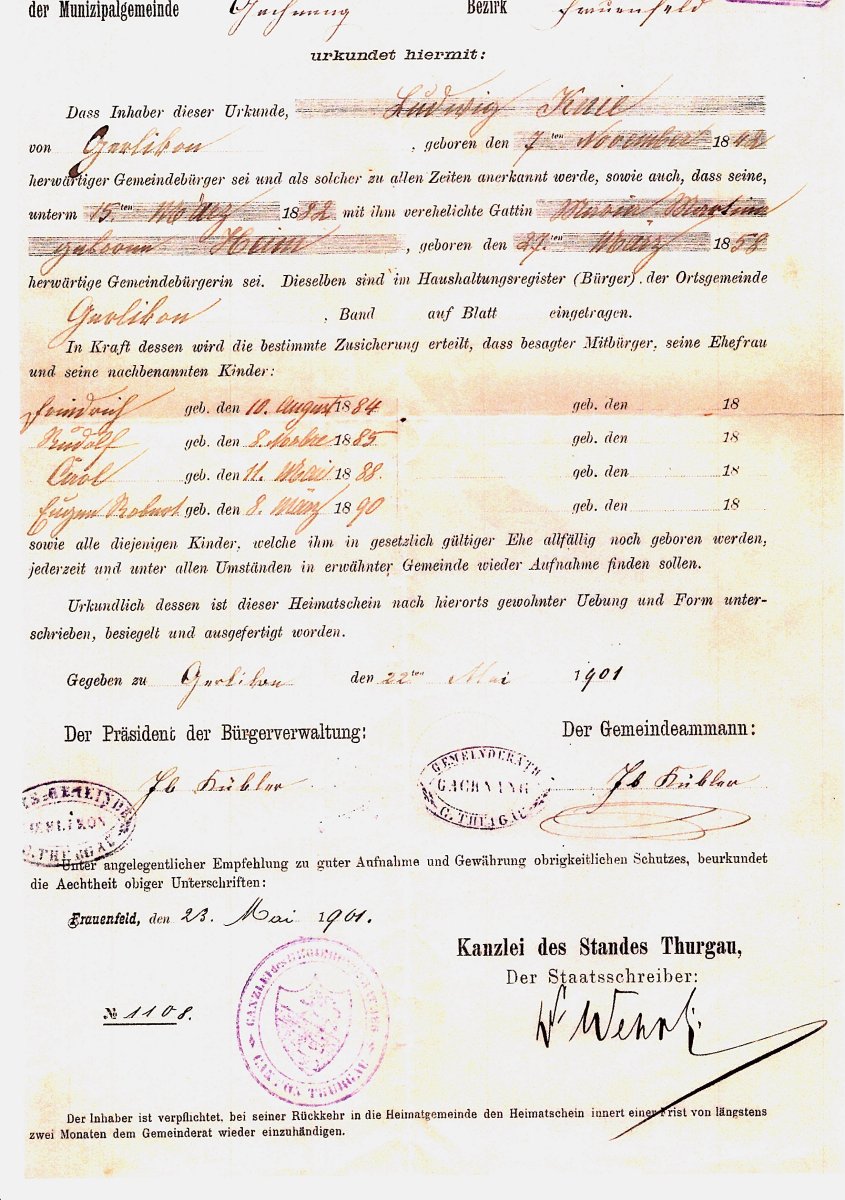 der Munizipalgemeinde Gachnang Bezirk Frauenfeld
urkundet hiermit:
Dass Inhaber dieser Urkunde, Ludwig
von Gerlikon , geboren den 7ten November 1842
herwärtiger Gemeindebürger sei und als solcher zu allen Zeiten anerkannt werde, sowie auch, dass seine,
unterm 15.ten März 1882 mit ihm verehelichte Gattin Maria Martina
geborne Heim , geboren den 27.ten März 1858
herwärtige Gemeindebürgerin sei. Dieselben sind im Haushaltungsregister (Bürger) der Ortsgemeinde
Gerlikon , Band auf Blatt eingetragen.
In Kraft dessen wird die bestimmte Zusicherung erteilt, dass besagter Mitbürger, seine Ehefrau
und seine nachbenannten Kinder:
Friedrich geb. den 10. August 1884 geb. den 18
Rudolf geb. den 8. 1885 geb. den 18
Carl geb. den 11. Mai 1888. geb. den 18
Eugen Robert geb. den 8. März 1890 geb. den 18
sowie alle diejenigen Kinder, welche ihm in gesetzlich gültiger Ehe allfällig noch geboren werden,
jederzeit und unter allen Umständen in erwähnter Gemeinde wieder Aufnahme finden sollen.
Urkundlich dessen ist dieser Heimatschein nach hierorts gewohnter Uebung und Form unter-
schrieben, besiegelt und ausgefertigt worden.
Gegeben zu Gerlikon den 22ten Mai 1901
Der Präsident der Bürgerverwaltung: Der Gemeindeammann:
Jb Kübler Jb Kübler
GEMEINDERATH
GACHNANG
C. THURGAU
GEMEINDE
GERLIKON
C. THURGAU
Unter angelegentlicher Empfehlung zu guter Aufnahme und Gewährung obrigkeitlichen Schutzes, beurkundet
die Aechtheit obiger Unterschriften:
Frauenfeld, den 23. Mai 1901.
Kanzlei des Standes Thurgau,
Der Staatsschreiber:
№ 1108.
Dr Wehrli
CANZLEI des REGIERUNGSRATHES
CTS. THURGAU
Der Inhaber ist verpflichtet, bei seiner Rückkehr in die Heimatgemeinde den Heimatschein innert einer Frist von längstens
zwei Monaten dem Gemeinderat wieder einzuhändigen.